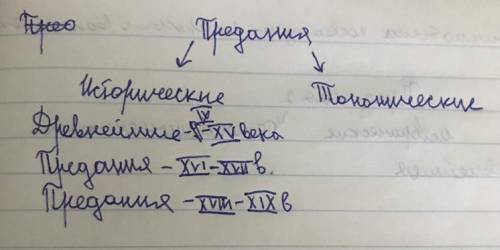 Предания
Исторические Топонимические
Древнейшие - IX - XV века
Предания - XVI - XVII в.
Предания - XVIII - XIX в